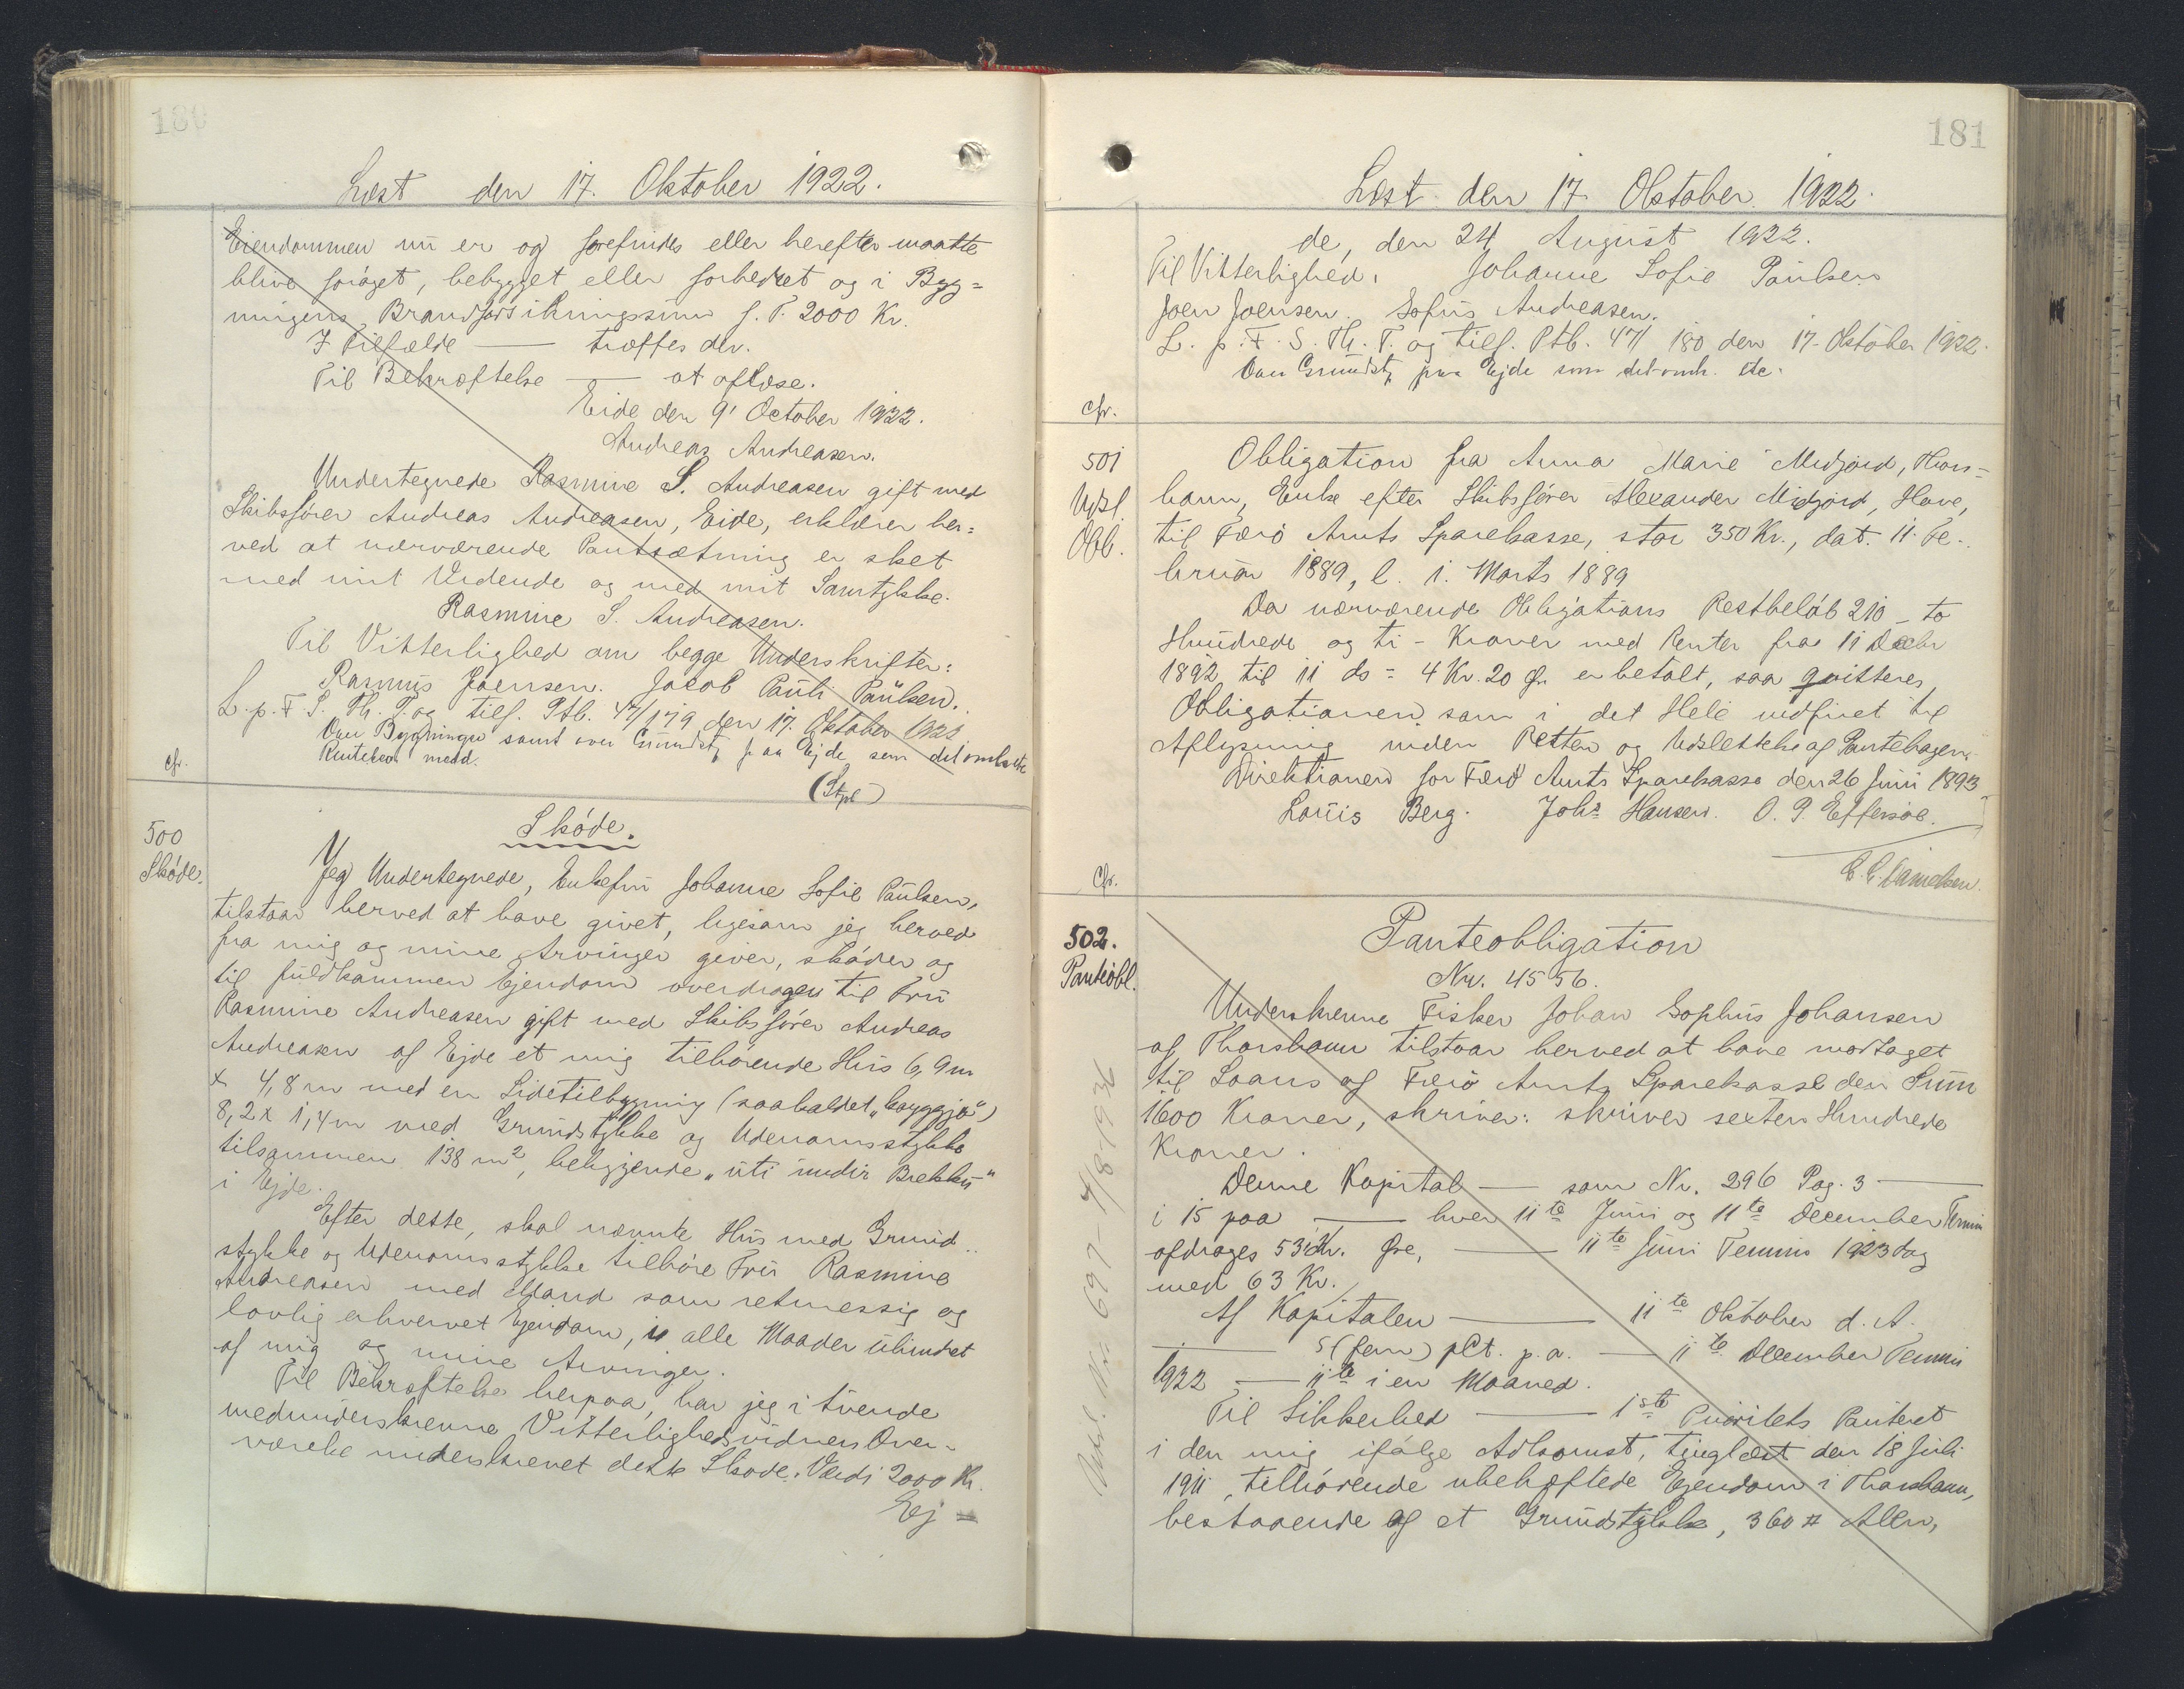 180
Læst den 17. Oktober 1922.
Eiendommen nu er og forefindes eller herefter maatte
blive forøget, bebygget eller forbedret og i Byg=
ningens Brandforsikringssum f. T. 2000 Kr.
I Tilfælde — træffes der.
Til Bekræftelse — at aflæse.
Eide den 9' October 1922.
Andreas Andreasen.
Undertegnede Rasmine S. Andreasen gift med
Skibsfører Andreas Andreasen, Eide, erklærer her=
ved at nærværende Pantsætning er sket
med mit Vidende og med mit Samtykke.
Rasmine S. Andreasen.
Til Vitterlighed om begge Underskrifter:
Rasmus Joensen. Jacob Pauli Paulsen.
L. p. F. S. Th. T. og tilf. Ptb. 47/179 den 17. Oktober 1922
Oven Bygningen samt over Grundst. paa Ejde, som det omh. etc
medd.
cfr.
(Stpl)
500
Skøde.
Skøde.
Jeg Undertegnede, Enkefru Johanne Sofie Paulsen,
tilstaar herved at have givet, ligesom jeg herved
fra mig og mine Arvinger giver, skøder og
til fuldkommen Ejendom overdrager til Fru
Rasmine Andreasen gift med Skibsfører Andreas
Andreasen af Ejde et mig tilhørende Hus 6,9 m
x 4,8 m med en Sidetilbygning (saakaldet "koyggja")
8,2 x 1,4 m med Grundstykke og Udenomsstykke
tilsammen 138 m², beliggende "úti undir Brekku"
i Ejde.
Efter dette, skal nævnte Hus med Grund..
stykke og Udenomsstykke tilhøre Fru Rasmine
Andreasen med Mand som retmessig og
lovlig erhvervet Ejendom, i alle Maader uhindret
af mig og mine Arvinger.
Til Bekræftelse herpaa, har jeg i tvende
medunderskrevne Vitterlighedsvidners Over-
værelse underskrevet dette Skøde. Værdi 2000 Kr.
Ej =
181
Læst den 17. Oktober 1922.
de, den 24 August 1922.
Til Vitterlighed. Johanne Sofie Paulsen
Joen Joensen. Sofus Andreasen.
L. p. F. S. Th. T. og tilf. Ptb. 47/180 den 17. Oktober 1922.
Oven Grundst. paa Ejde som det omh. etc.
cfr.
501
Udsl
Obl.
Obligation fra Anna Marie Midjord, Thors=
havn, Enke efter Skibsfører Alexander Midjord, Hove,
til Færø Amts Sparekasse, stor 350 Kr., dat. 11. Fe-
bruar 1889, l. 1. Marts 1889
Da nærværende Obligations Restbeløb 210 - to
Hundrede og ti - Kroner med Renter fra 11 Decbr
1892 til 11 ds = 4 Kr. 20 Ør er betalt, saa quitteres
Obligationen som i det Hele indfriet til
Aflysning inden Retten og Udslettelse af Pantebogen.
Direktionen for Færø Amts Sparekasse den 26 Juni 1893
Louis Berg. Johs Hansen. O. P. Effersøe.
E. E. Danielsen.
Cfr.
502.
Panteobl.
Udsl. Nr. 697 - 4/8 1936
Panteobligation
Nr. 4556.
Underskrevne Fisker Johan Sophus Johansen
af Thorshavn tilstaar herved at have modtaget
til Laans af Færø Amts Sparekasse den Sum
1600 Kroner, skriver: skriver sexten Hundrede
Kroner.
Denne Kapital — som Nr. 296 Pag. 3 —
i 15 paa — hver 11te Juni og 11te December Termin
afdrages 53 Kr. Øre, — 11te Juni Termin 1923 dog
med 63 Kr.
Af Kapitalen — 11te Oktober d. A.
— 5 (fem) pCt. p. a. — 11te December Termin
1922 — 11te i en Maaned.
Til Sikkerhed — 1ste Prioritets Panteret
i den mig ifølge Adkomst, tinglæst den 18 Juli
1911, tilhørende ubehæftede Ejendom i Thorshavn,
bestaaende af et Grundstykke, 360 □ Alen,